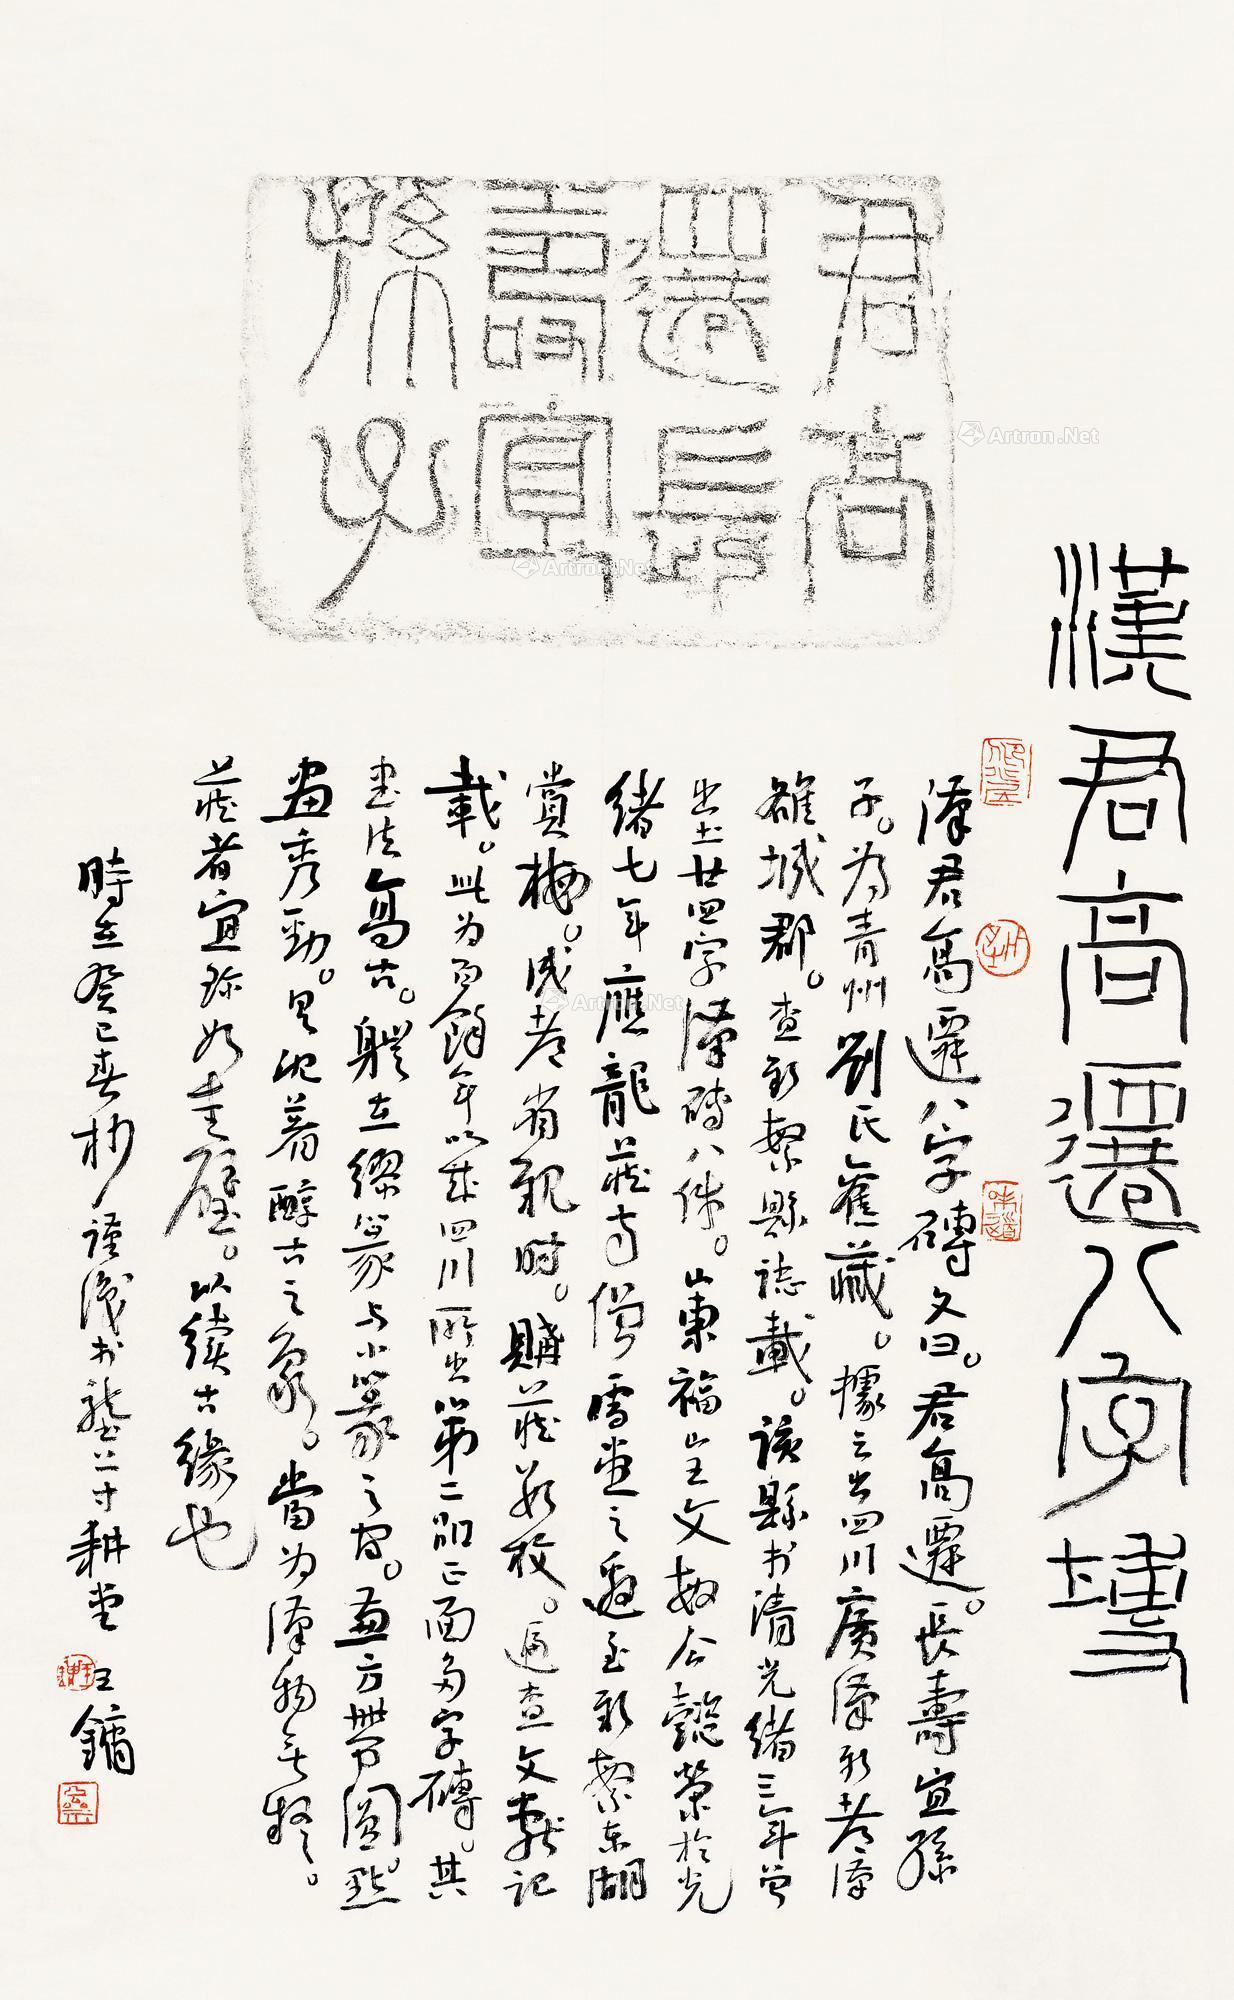 漢君高遷八字塼
君高
遷長
壽宜
孫子
漢君高遷八字磚文曰。君高遷。長壽宜孫
子。為青州劉氏舊藏。據云出四川廣漢新都漢
雒城郡。查新繁縣誌載。該縣於清光緒三年曾
出土廿四字漢磚八件。山東福山王文敏公懿榮於光
緒七年應龍藏寺僧雪堂之邀至新繁東湖
賞梅。成都省親時。購藏數枚。遍查文獻記
載。此為百餘年以來四川所出第二品正面多字磚。其
書法高古。體在繆篆与小篆之間。画方帶圓。點
畫秀勁。具沈著醇古之象。當為漢物無疑。
藏者宜珍如圭璧。以續古緣也
時在癸巳春杪謹識於龔公寸耕堂
王鏞
Artron.Net
Artron.Net
Artron.Net